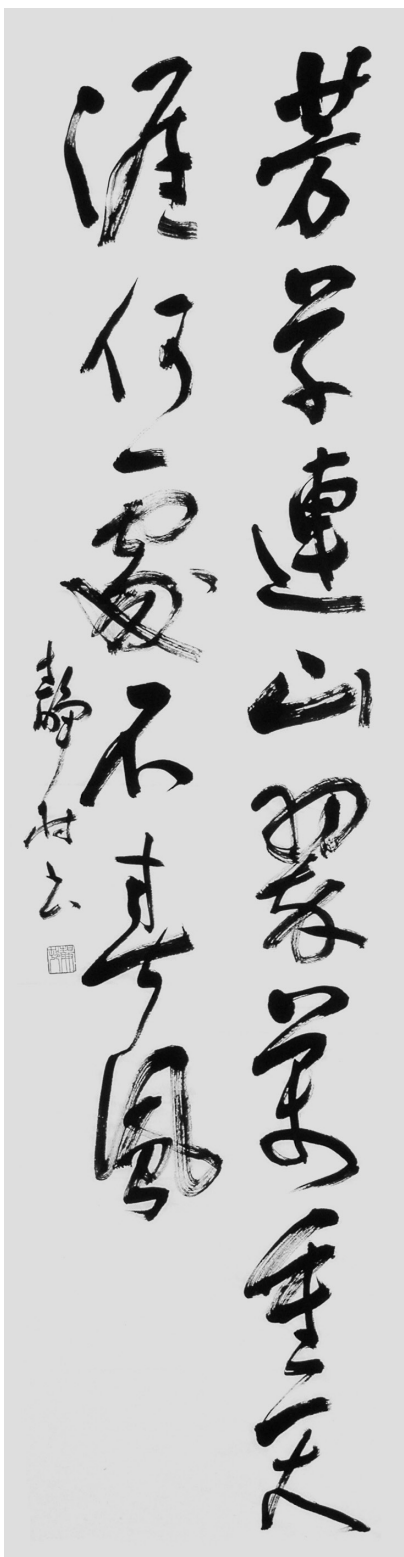 芳草連山翠萬重天
涯何處不春風
靜村書